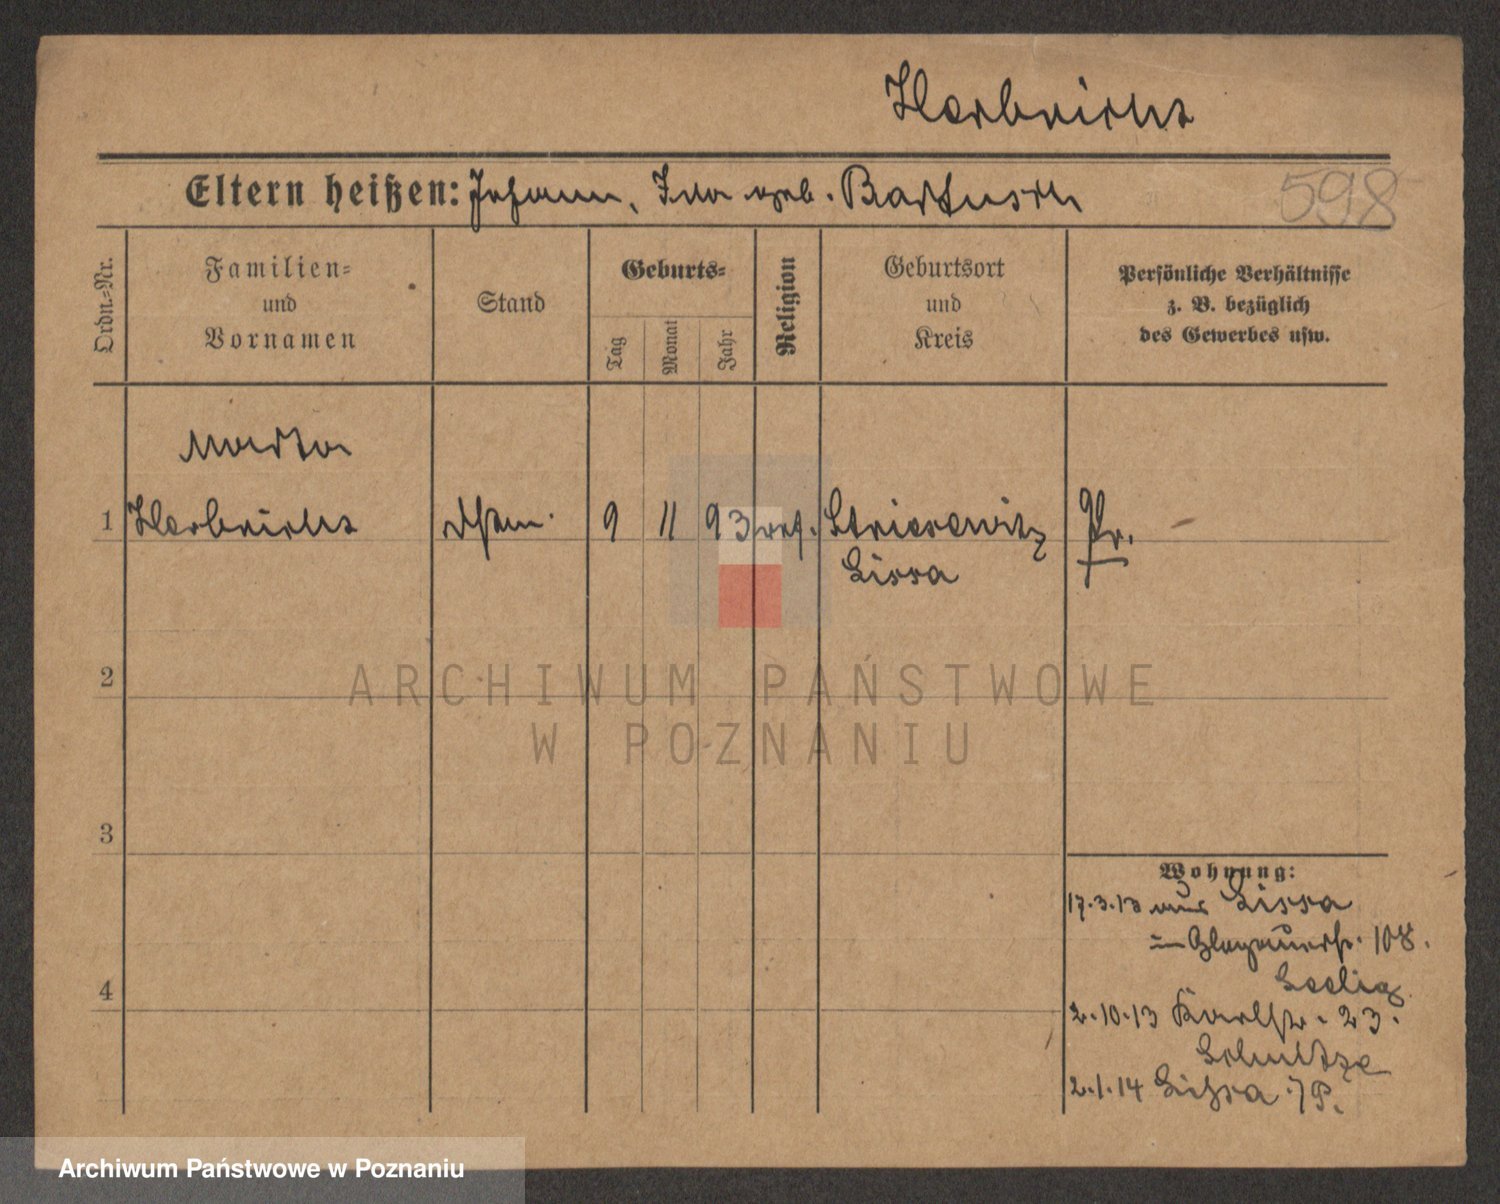 Herbricht
Eltern heißen: Johann, Ida geb. Bartusch
598
Ordn.=Nr.
Familien=
und
Vornamen
Stand
Geburts=
Tag
Monat
Jahr
Religion
Geburtsort
und
Kreis
Persönliche Verhältnisse
z. B. bezüglich
des Gewerbes usw.
Marta
1 Herbricht 9 11 93 Striesewitz Pr.
Lissa
ARCHIWUM PAŃSTWOWE
W POZNANIU
2
3
4
Wohnung:
17.3.13 aus Lissa
Glogauerstr. 108.
Seelig
2.10.13 Karlstr. 23.
Schultze
2.1.14 Lissa i/P.
Archiwum Państwowe w Poznaniu